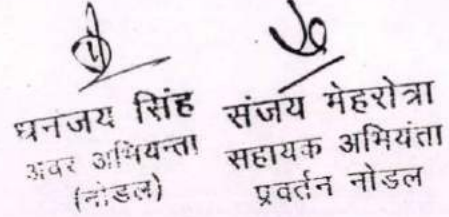 धनंजय सिंह
अवर अभियन्ता
(नोडल)
संजय मेहरोत्रा
सहायक अभियंता
प्रवर्तन नोडल